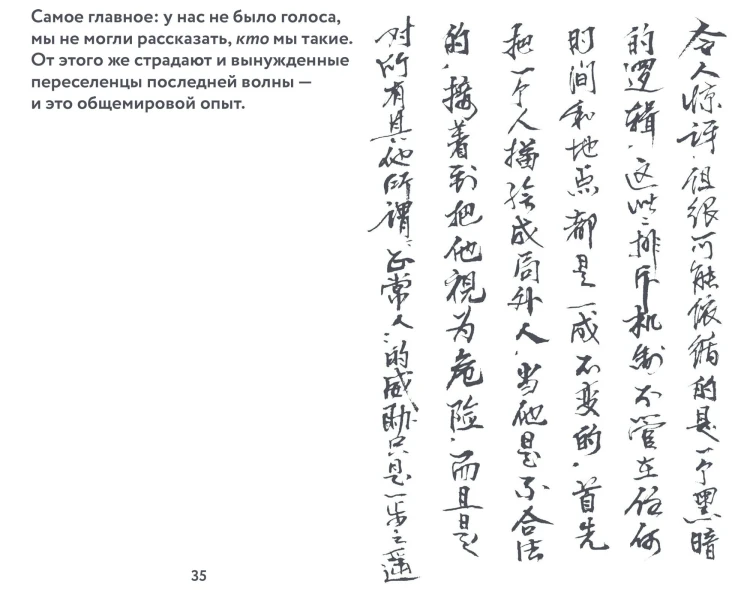 Самое главное: у нас не было голоса,
мы не могли рассказать, кто мы такие.
От этого же страдают и вынужденные
переселенцы последней волны —
и это общемировой опыт.
令人惊讶,但很可能依循的是一个黑暗
的逻辑,这些排斥机制不管在任何
时间和地点都是一成不变的,首先
把一个人描绘成局外人,当他是不合法
的,接着到把他視为危险,而且是
对所有其他所谓“正常人”的威胁只是一步之遥
35